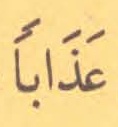 عَذَاباً